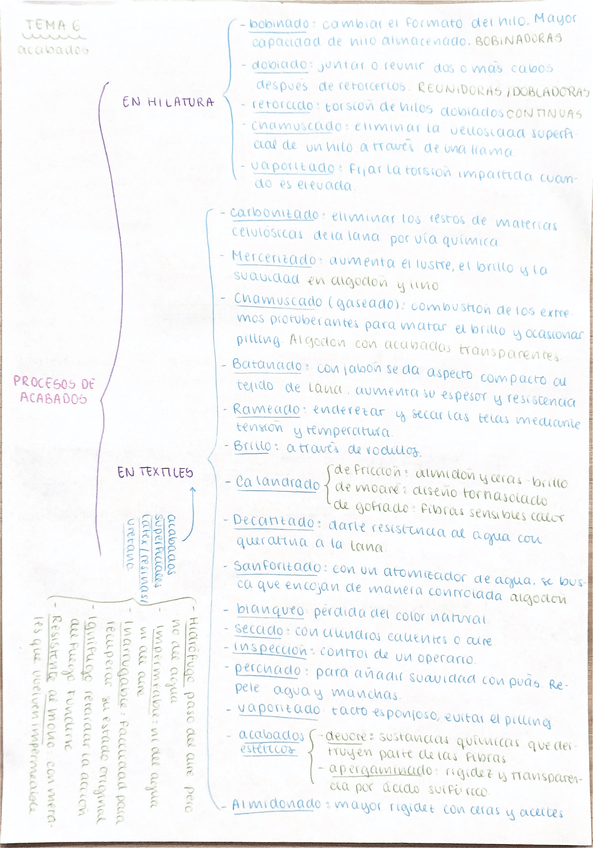 TEMA 6
acabados
PROCESOS DE
ACABADOS
EN HILATURA
- bobinado: cambiar el formato del hilo. Mayor
capacidad de hilo almacenado. BOBINADORAS
- doblado: juntar o reunir dos o más cabos
después de retorcerlos. REUNIDORAS/DOBLADORAS
- retorcido: torsión de hilos doblados CONTINUAS
- chamuscado: eliminar la vellosidad superfi-
cial de un hilo a través de una llama
- vaporizado: Fijar la torsión impartida cuan-
do es elevada.
EN TEXTILES
- Carbonizado: eliminar los restos de materias
celulósicas de la lana por vía química
- Mercerizado: aumenta el lustre, el brillo y la
suavidad en algodón y lino
- Chamuscado (gaseado): combustión de los extre-
mos protuberantes para matar el brillo y ocasionar
pilling Algodón con acabados transparentes
- Batanado: con jabón se da aspecto compacto al
tejido de lana. aumenta su espesor y resistencia
- Rameado: enderezar y secar las telas mediante
tensión y temperatura.
- Brillo: a través de rodillos.
- Calandrado
de fricción: almidón y ceras - brillo
de moaré: diseño tornasolado
de gofrado: Fibras sensibles calor
- Decantizado: darle resistencia al agua con
queratina a la lana
- Sanforizado: con un atomizador de agua, se bus-
ca que encojan de manera controlada algodón
- blanqueo pérdida del color natural
- secado: con cilindros calientes o aire
- inspección: control de un operario.
- perchado: para añadir suavidad con púas. Re-
pele agua y manchas.
- vaporizado tacto esponjoso, evitar el pilling
- acabados
estéticos
- devoré: sustancias químicas que des-
truyen parte de las Fibras
- apergaminado: rigidez y transparen-
cia por ácido sulfúrico
- Almidonado: mayor rigidez con ceras y aceites
acabados
superficiales
(látex/resinas)
uretano
- Hidrófugo paso del aire pero
no del agua
- Impermeable: ni del agua
ni del aire
- Inarrugable Facilidad para
recuperar su estado original
- Ignífugo retardar la acción
del fuego
- Resistente al moho con meta-
les que vuelven impermeable